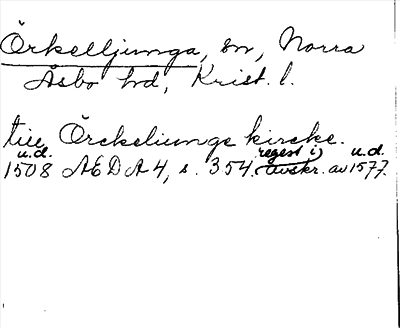 Örkelljunga, sn, Norra
Åsbo hd, Krist. l.
till Örckeliunge kircke.
u.d. regest i) u.d.
1508 AEDA4, s. 354. avskr. av 1577.